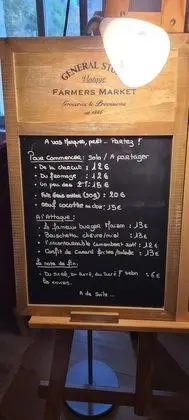 GENERAL STORE
Vintage
FARMERS MARKET
Groceries & Provisions
est. 1888
A vos Masques, prêt... Partez !
Pour Commencer : Solo / A partager
• De la charcut : 12€
• Du fromage : 12€
• Un peu des 2 : 15€
• Foie Gras entier (50g) : 20€
• Oeuf cocotte : 13€
A l'Attaque :
• Le fameux burger Maison : 13€
• Bruschetta chèvre/miel : 13€
• L'incontournable camembert rôti : 12€
• Confit de Canard frites/salade : 13€
La note de fin :
• Du sucré, du sucré, du sucré ! selon : 6€
les envies.
A de suite...